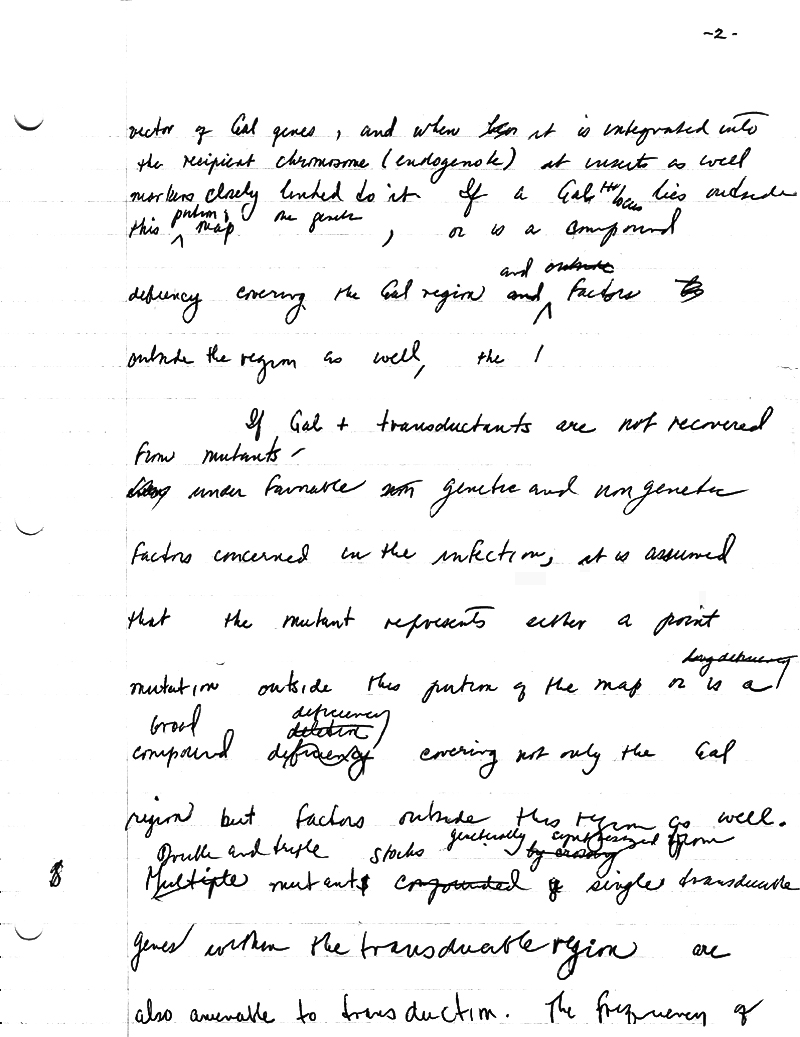 -2-
vector of Gal genes, and when it is integrated into
the recipient chromosome (endogenote) it inserts as well
markers closely linked to it If a Gal locus lies outside
this portion, map one genetic, or is a compound
and outside
deficiency covering the Gal region and factors to
outside the region as well, the /
If Gal + transductants are not recovered
from mutants -
under favorable non genetic and non genetic
factors concerned in the infection, it is assumed
that the mutant represents either a point
long deficiency
mutation outside this portion of the map or is a
broad deficiency
deletion
compound deficiency covering not only the Gal
region but factors outside this region as well.
Double and triple stocks genetically synthesized from
by crossing
8 Multiple mutants compounded of single transducable
genes within the transducable region are
also amenable to transduction. The frequency of